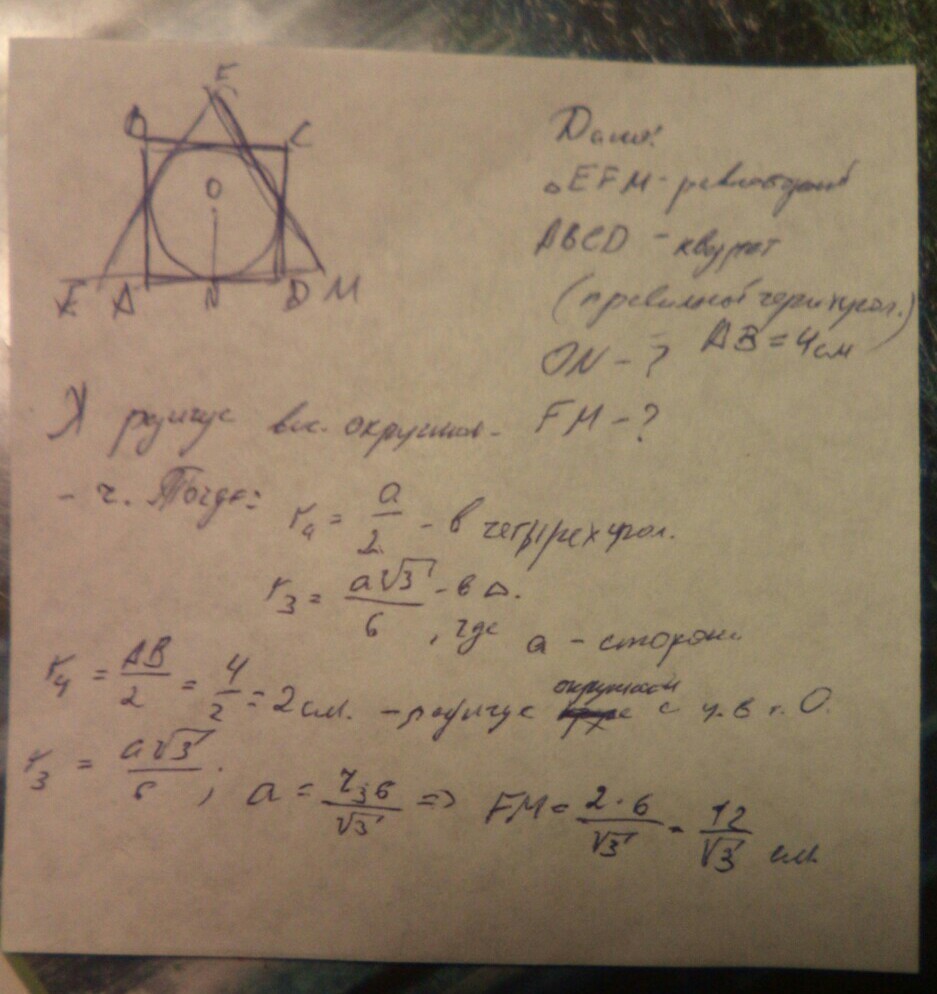 F
C
O
E A N D M
Дано:
△EFM - равносторонний
ABCD - квадрат
(правильный четырехугол.)
AB = 4 см
ON - ?
FM - ?
радиус вис. окружнос.
- r. Тогда:
r₄ = a/2 - в четырехугол.
r₃ = a√3/6 - в △.
, где a - сторона
r₄ = AB/2 = 4/2 = 2 см. - радиус окружности с ц. в т. O.
r₃ = a√3/6 ; a = r₃6/√3 => FM = 2·6/√3 = 12/√3 см.